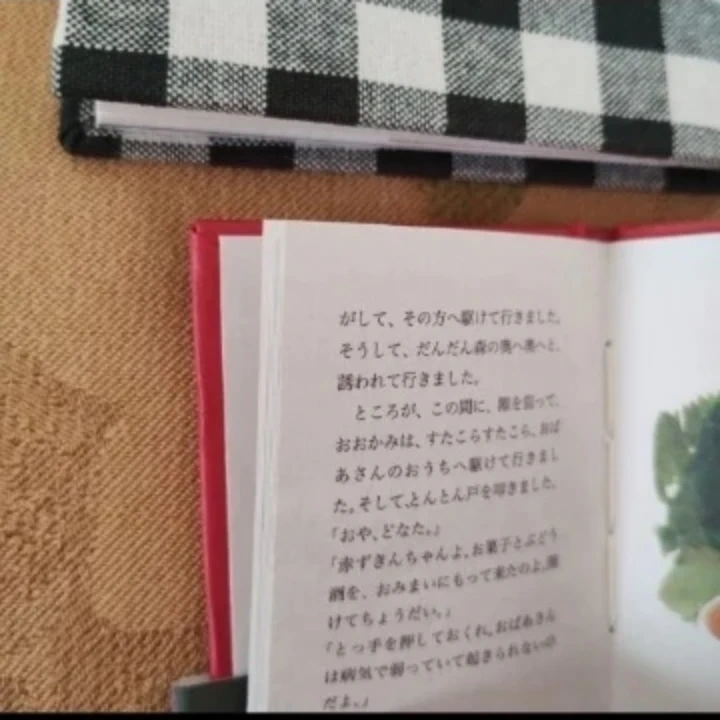 がして、その方へ駆けて行きました。
そうして、だんだん森の奥へ奥へと、
誘われて行きました。
ところが、この間に、隙を狙って、
おおかみは、すたこらすたこら、おば
あさんのおうちへ駆けて行きまし
た。そして、とんとん戸を叩きました。
「おや、どなた。」
「赤ずきんちゃんよ。お菓子とぶどう
酒を、おみまいにもって来たのよ。開
けてちょうだい。」
「とっ手を押しておくれ。おばあさん
は病気で弱っていて起きられないの
だよ。」